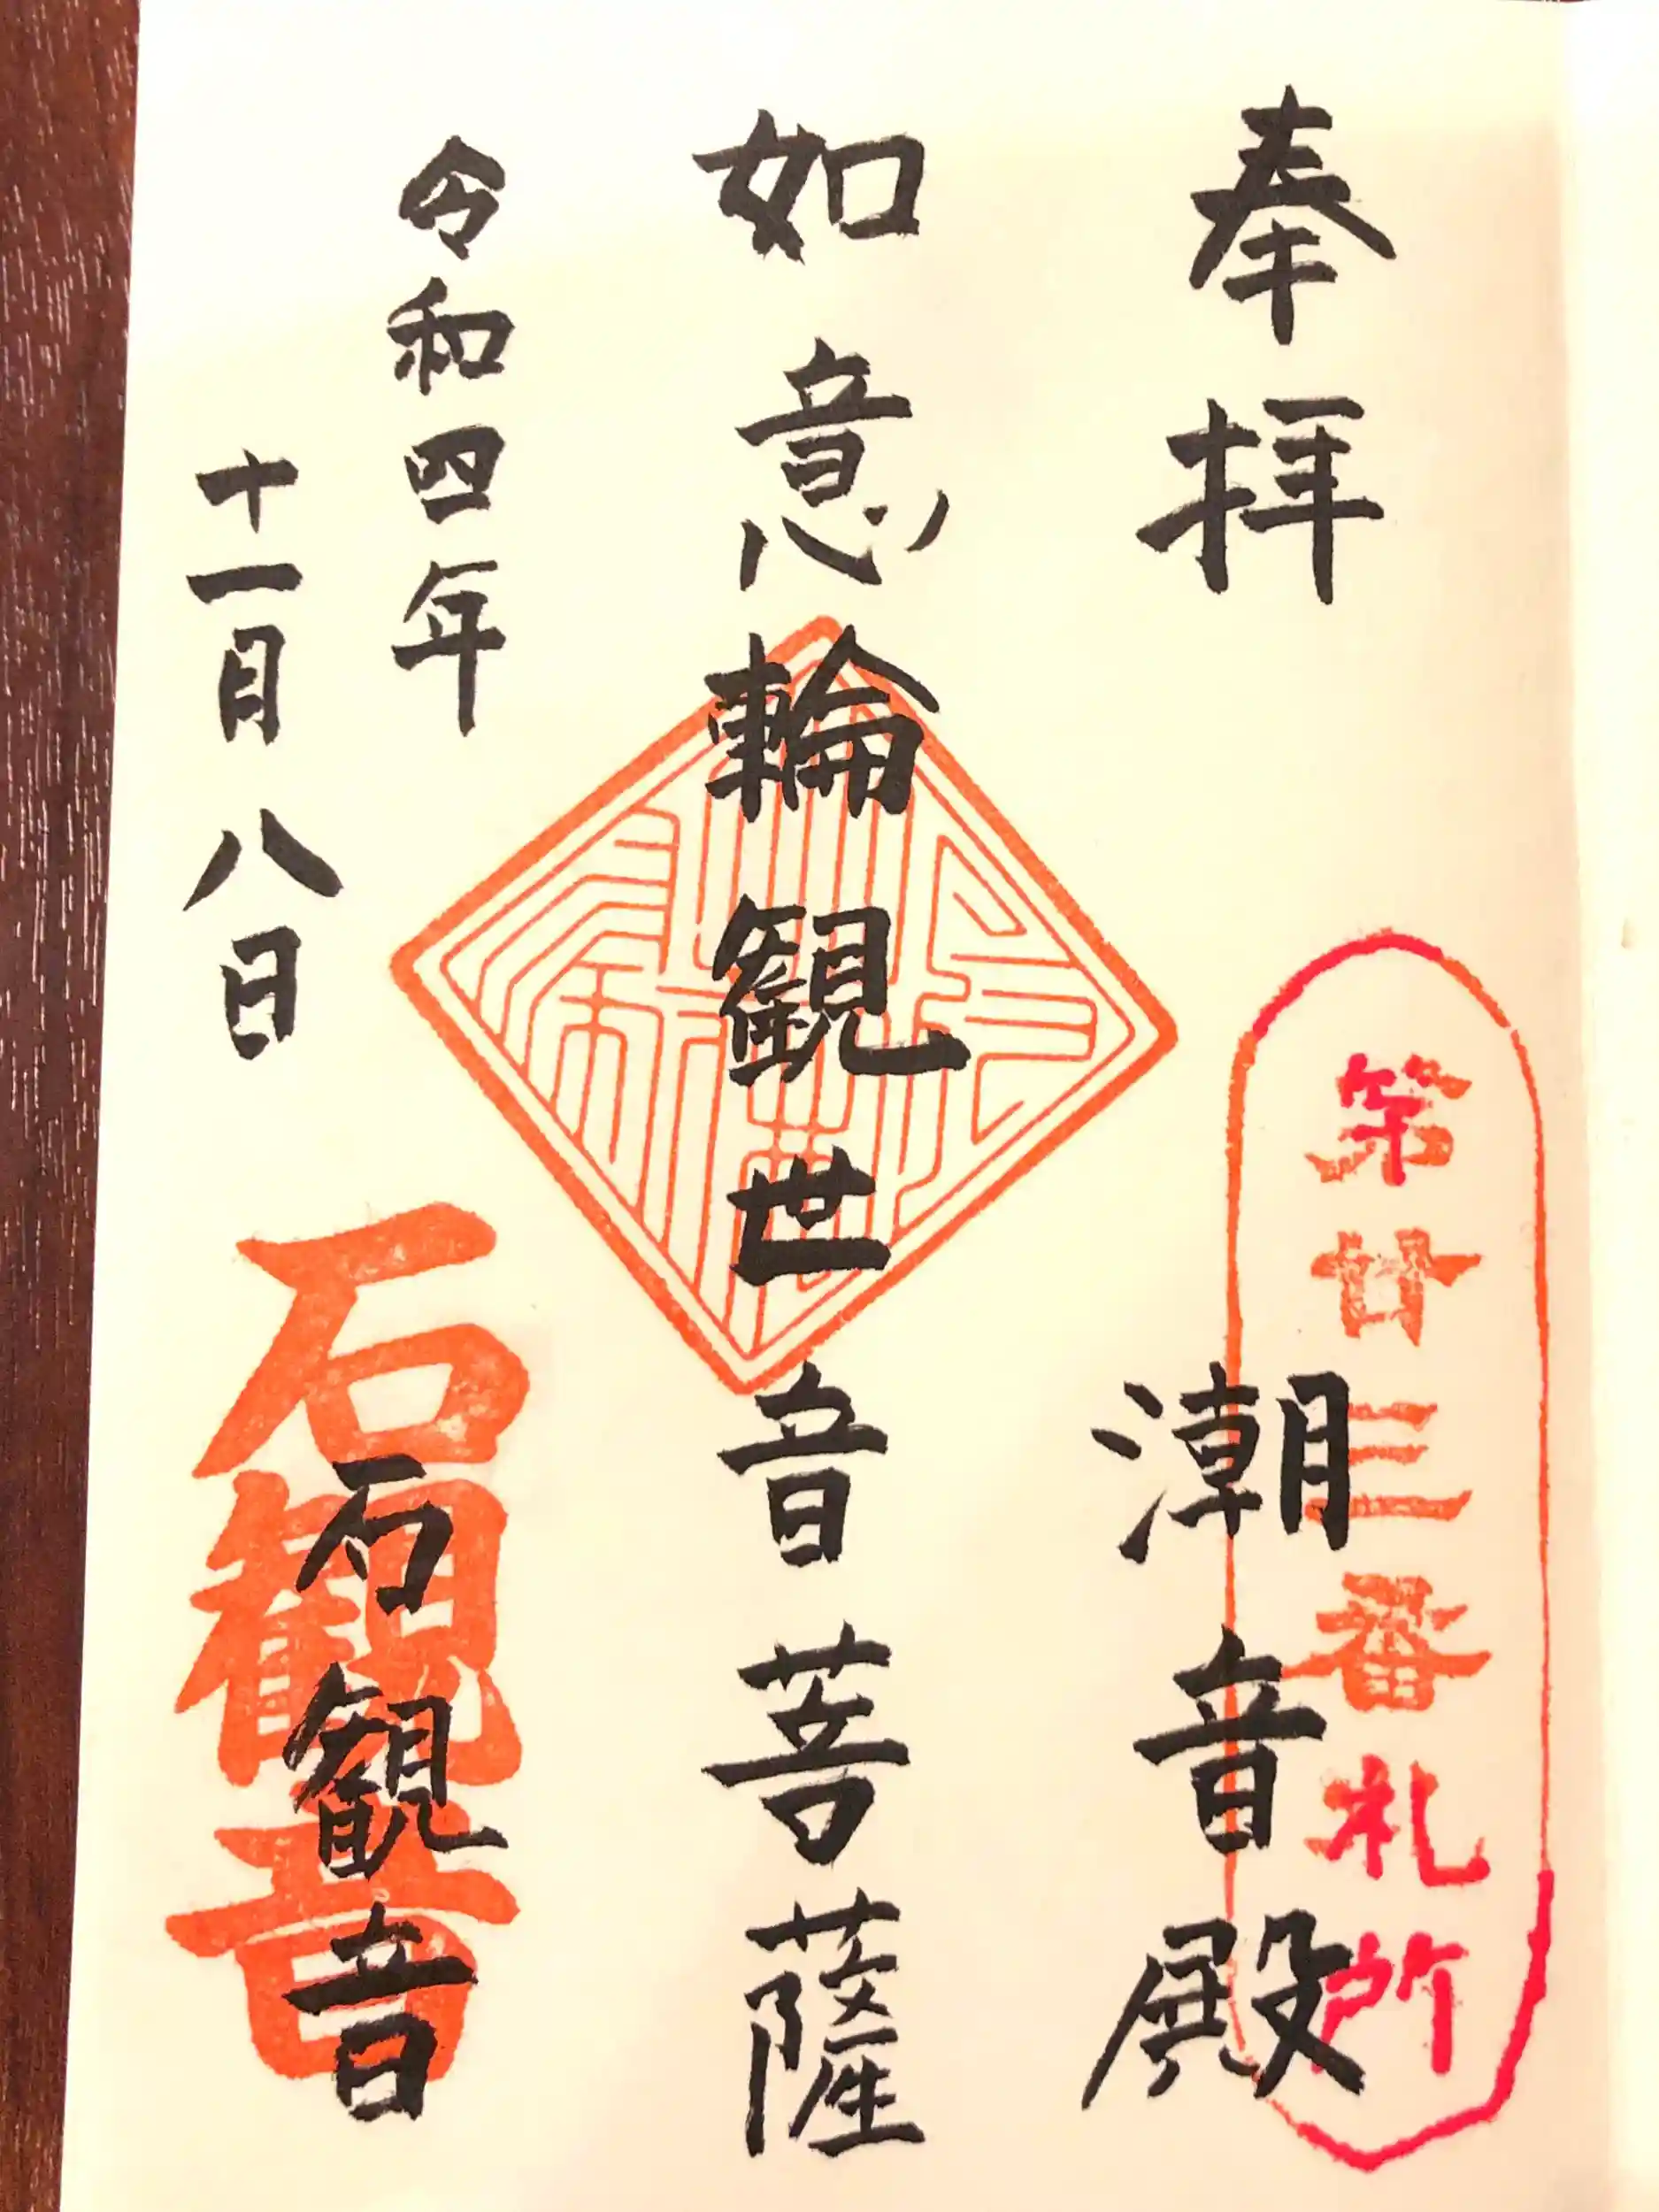 奉拝
第廿三番札所
潮音殿
如意輪観世音菩薩
令和四年
十一月八日
石観音
石観音